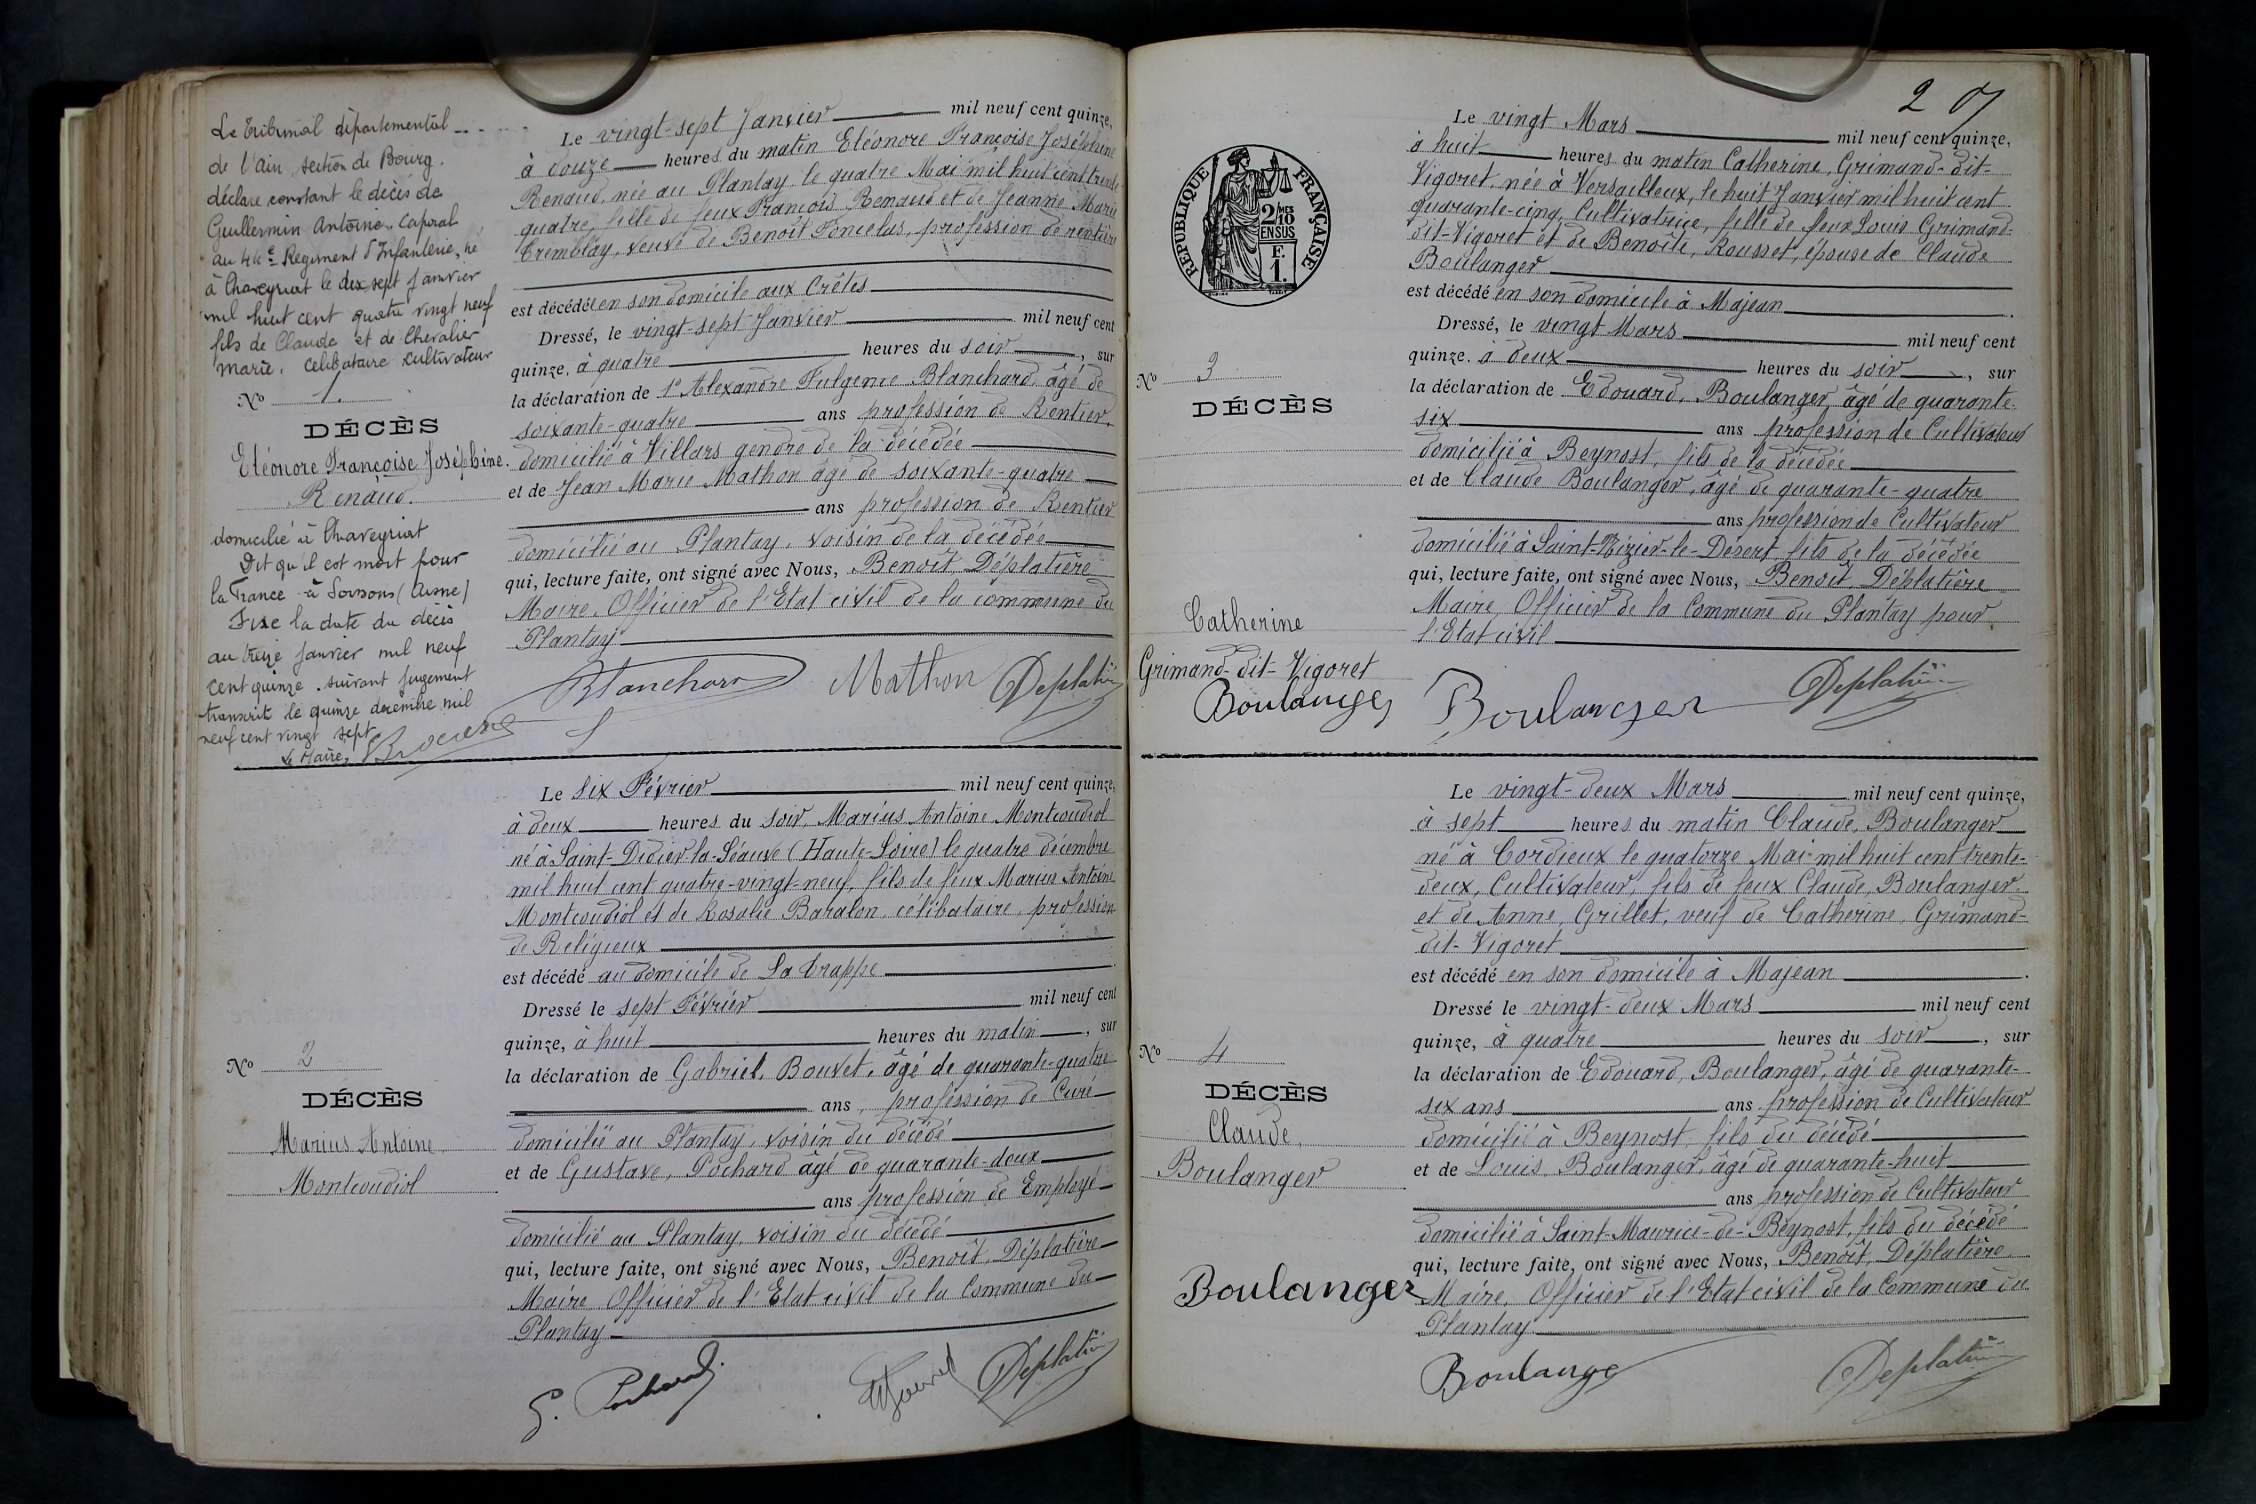 Le Tribunal départemental
de l'Ain, section de Bourg.
déclare constant le décès de
Guillermin Antoine, Caporal
au 44e Régiment d'Infanterie, né
à Chaveyriat le dix sept Janvier
mil huit cent quatre vingt neuf
fils de Claude et de Chevalier
Marie. Célibataire cultivateur
No 1.
DÉCÈS
Eléonore Françoise Joséphine.
Renaud.
domicilié à Chaveyriat
Dit qu'il est mort pour
la France à Soissons (Aisne)
Fixe la date du décès
au treize Janvier mil neuf
cent quinze. suivant jugement
transcrit le quinze décembre mil
neuf cent vingt sept
Le Maire,
Le vingt-sept Janvier mil neuf cent quinze,
à douze heures du matin Eléonore Françoise Joséphine
Renaud, née au Plantay, le quatre Mai mil huit cent trente
quatre, fille de feux François Renaud et de Jeanne Marie
Tremblay, veuve de Benoît Poncelas, profession de rentière
est décédée en son domicile aux Crêtes
Dressé, le vingt-sept Janvier mil neuf cent
quinze, à quatre heures du soir, sur
la déclaration de 1° Alexandre Fulgence Blanchard, âgé de
soixante-quatre ans profession de Rentier,
domicilié à Villars gendre de la décédée
et de Jean Marie Mathon âgé de soixante-quatre
ans profession de Rentier
domicilié au Plantay, voisin de la décédée
qui, lecture faite, ont signé avec Nous, Benoît, Déplatière
Maire, Officier de l'Etat civil de la commune du
Plantay
Blanchard Mathon Deplatière
No 2
DÉCÈS
Marius Antoine
Montcoudiol
Le six Février mil neuf cent quinze,
à deux heures du soir, Marius Antoine Montcoudiol
né à Saint-Didier-la-Séauve (Haute-Loire) le quatre décembre
mil huit cent quatre-vingt-neuf, fils de feux Marius Antoine
Montcoudiol et de Rosalie Baralon, célibataire, profession
de Religieux
est décédé au domicile de La Trappe
Dressé le sept Février mil neuf cent
quinze, à huit heures du matin, sur
la déclaration de Gabriel, Bouvet, âgé de quarante-quatre
ans, profession de Curé
domicilié au Plantay, voisin du décédé
et de Gustave, Pochard âgé de quarante-deux
ans profession de Employé
domicilié au Plantay, voisin du décédé
qui, lecture faite, ont signé avec Nous, Benoît, Déplatière
Maire Officier de l'Etat civil de la Commune du
Plantay
G. Pochard Deplatière
2
RÉPUBLIQUE FRANÇAISE
2/10MES
EN SUS
F.
1.
No 3
DÉCÈS
Catherine
Grimand-dit-Vigoret
Le vingt Mars mil neuf cent quinze,
à huit heures du matin Catherine, Grimand-dit-
Vigoret, née à Versailleux, le huit Janvier mil huit cent
quarante-cinq, Cultivatrice, fille de feux Louis Grimand-
dit-Vigoret et de Benoite, Rousset, épouse de Claude
Boulanger
est décédé en son domicile à Majean
Dressé, le vingt Mars mil neuf cent
quinze, à deux heures du soir, sur
la déclaration de Edouard, Boulanger, âgé de quarante-
six ans profession de Cultivateur
domicilié à Beynost, fils de la décédée
et de Claude Boulanger, âgé de quarante-quatre
ans profession de Cultivateur
domicilié à Saint-Nizier-le-Désert, fils de la décédée
qui, lecture faite, ont signé avec Nous, Benoît, Déplatière
Maire, Officier de la Commune du Plantay pour
l'Etat civil
Boulanger Boulanger Deplatière
No 4
DÉCÈS
Claude,
Boulanger
Le vingt-deux Mars mil neuf cent quinze,
à sept heures du matin Claude, Boulanger
né à Cordieux le quatorze Mai mil huit cent trente-
deux, Cultivateur, fils de feux Claude, Boulanger
et de Anne, Grillet, veuf de Catherine, Grimand-
dit-Vigoret
est décédé en son domicile à Majean
Dressé le vingt-deux Mars mil neuf cent
quinze, à quatre heures du soir, sur
la déclaration de Edouard, Boulanger, âgé de quarante-
six ans ans profession de Cultivateur
domicilié à Beynost, fils du décédé
et de Louis, Boulanger, âgé de quarante-huit
ans profession de Cultivateur
domicilié à Saint-Maurice-de-Beynost, fils du décédé
qui, lecture faite, ont signé avec Nous, Benoît, Déplatière
Maire, Officier de l'Etat civil de la Commune du
Plantay
Boulanger
Boulanger Deplatière